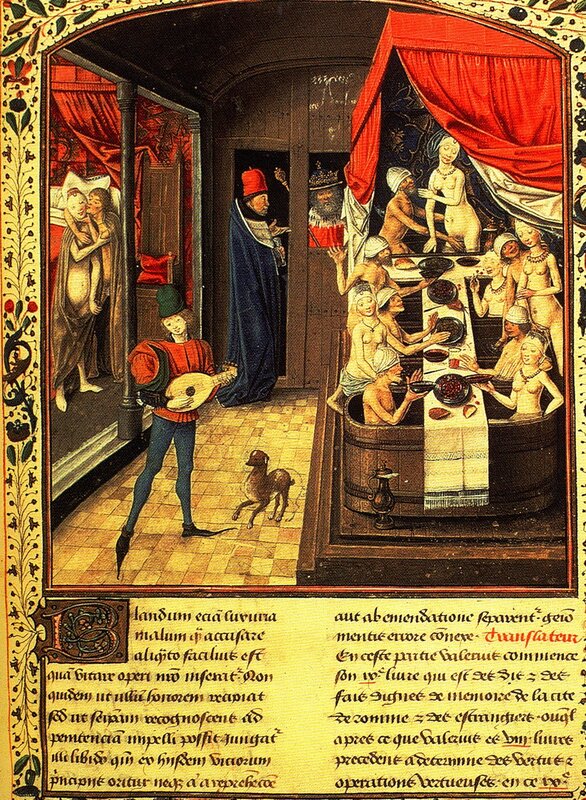 Blandum eciã luxuria
malum qͥ accusare
aliqͣto facilius est
quã vitare operi nr̃o inserat᷑ Non
quidem ut ullũ honorem recipiat
sed ut seipam recognoscens ad
penitenciã impelli possit Iungat᷑
illi libido qm̃ ex hijsdem viciorum
principiis oritur neqʒ a reprehẽcõe
aut ab emendatione separent᷑ gemi
mentis errore cõnexe Translateur
En ceste partie Valerius commence
son ixᵉ livre qui est des diz ⁊ des
fais dignes de memoire de la cite
de romme ⁊ des estrangiers ouql̃
apres ce que Valerius es viij livres
precedens a determine des vertus ⁊
operations vertueuses en ce ixᵉ